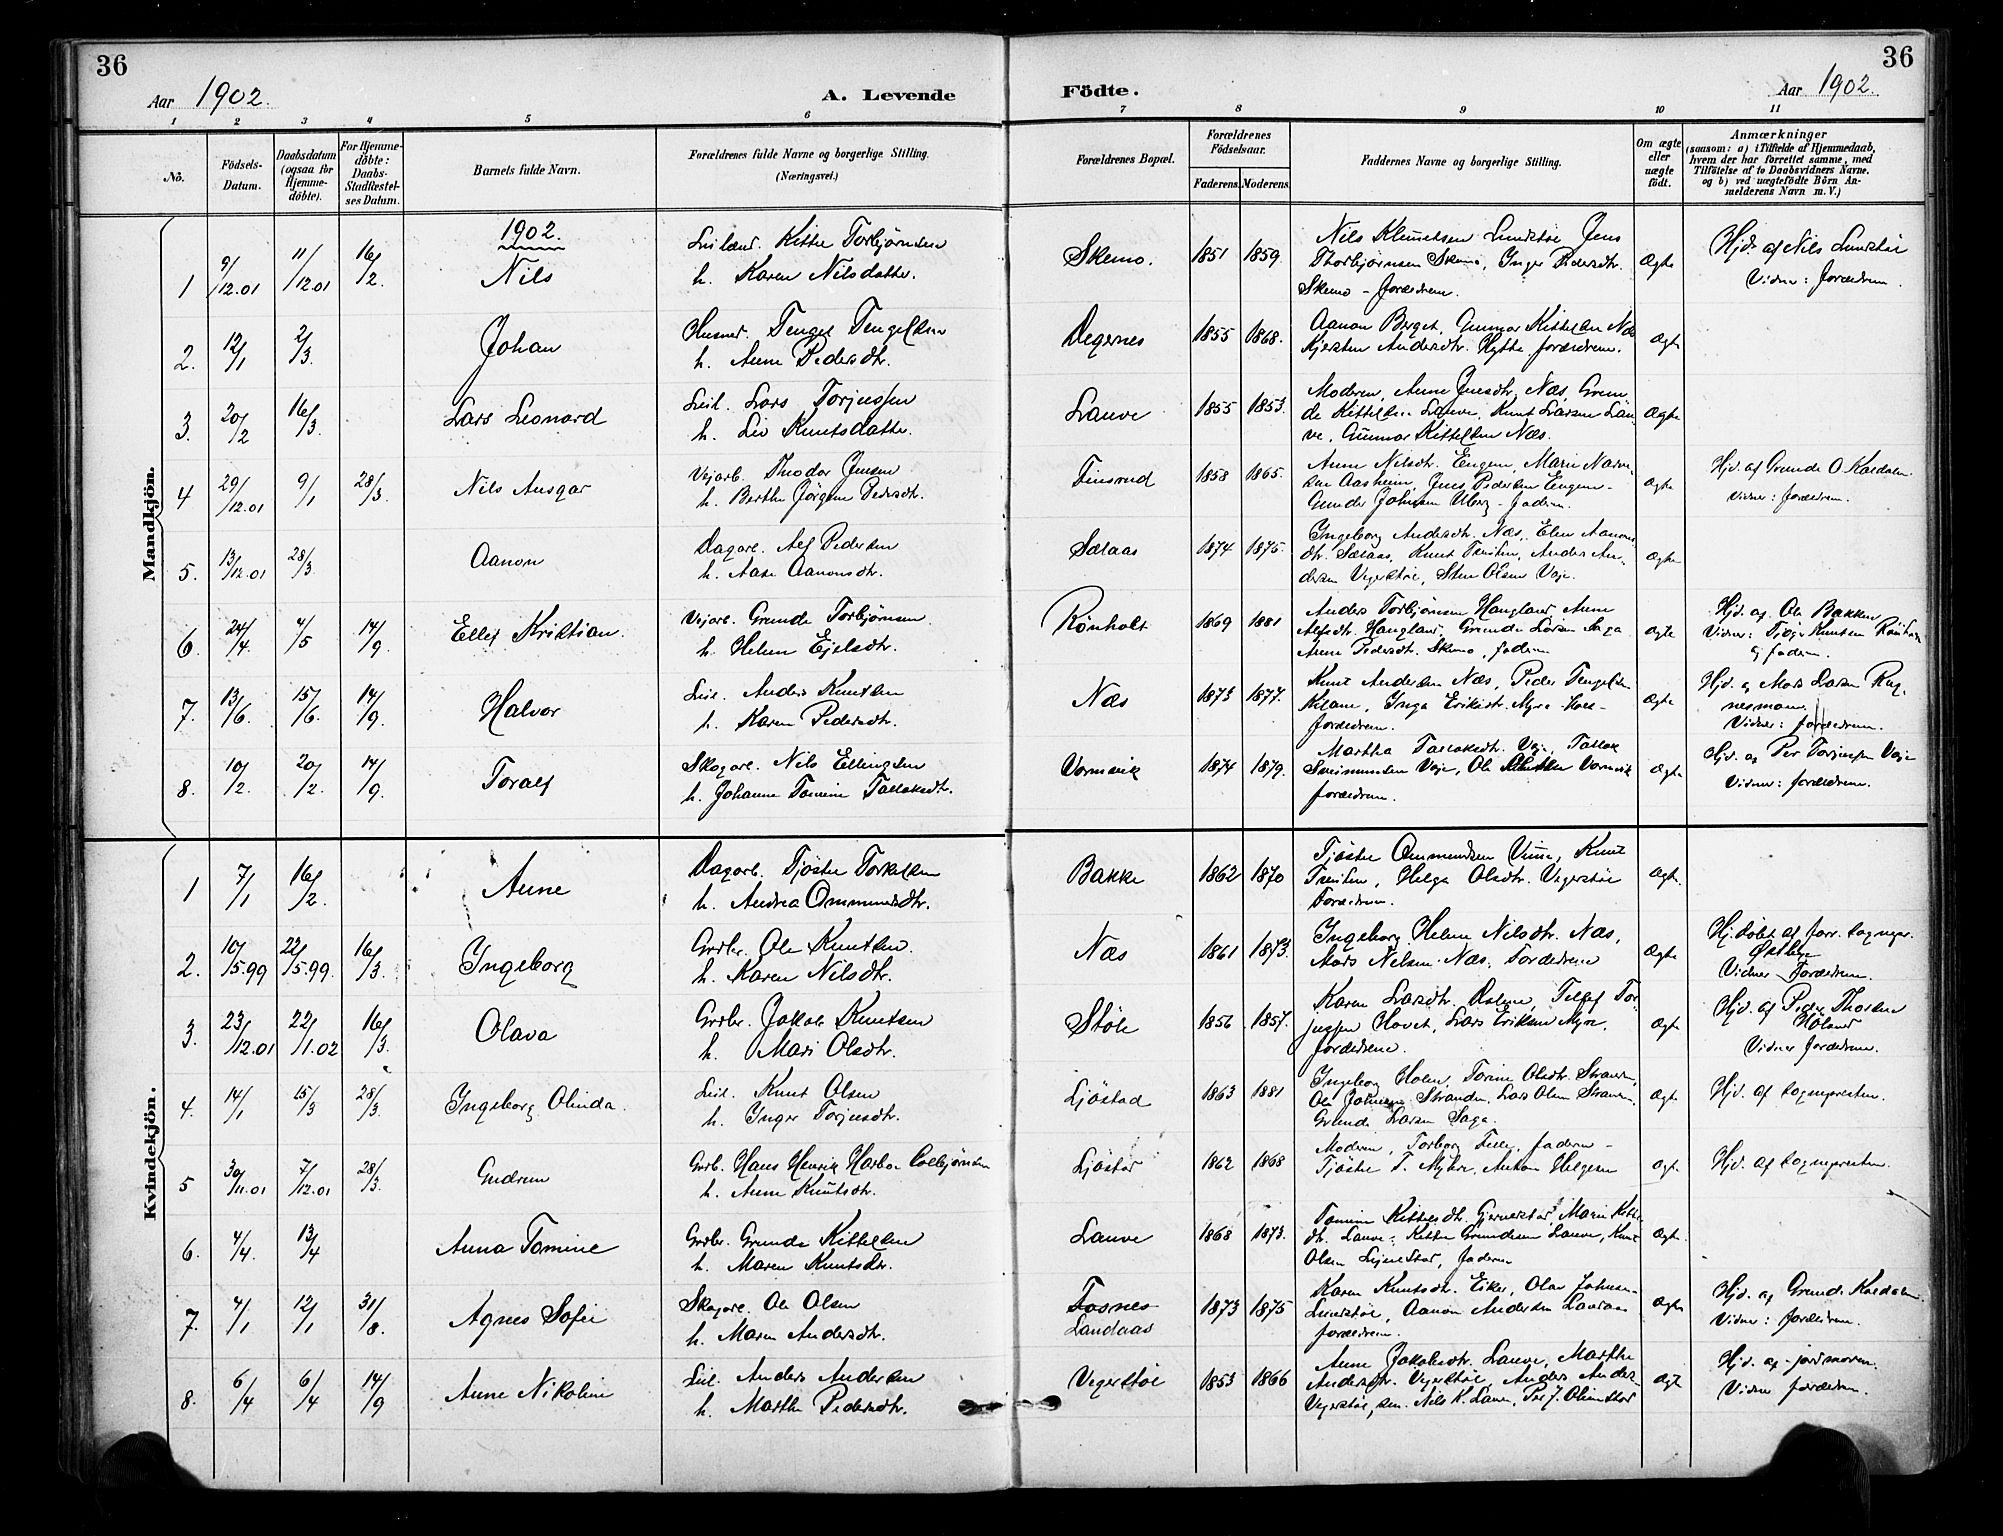 36
36
Aar 1902.
A. Levende
Födte.
Aar 1902.
1 2 3 4 5 6 7 8 9 10 11
No.
Födsels-Datum.
Daabsdatum (ogsaa for Hjemme-döbte).
For Hjemme-döbte: Daabs-Stadfæstel-ses Datum.
Barnets fulde Navn.
Forældrenes fulde Navne og borgerlige Stilling. (Næringsvei.)
Forældrenes Bopæl.
Forældrenes Födselsaar.
Faderens. Moderens.
Faddernes Navne og borgerlige Stilling.
Om ægte eller uægte födt.
Anmærkninger (saasom: a) i Tilfælde af Hjemmedaab, hvem der har forrettet samme, med Tilföielse af to Daabsvidners Navne. og b) ved uægtefödte Börn Anmelderens Navn m. V.)
Mandkjön.
1902.
1 9/12.01 11/12.01 16/2. Nils
Leilænd. Kittel Torbjörnsen
h. Karen Nilsdatter.
Skemo. 1851 1859.
Nils Klemetsen Lundstöe Jens
Thorbjörnsen Skemo, Inger Pedersdtr.
Skemo - forældrene.
Ægte
Hjd. af Nils Lundstöe
Vidner: forældrene.
2. 12/1 2/3. Johan
Husmd. Tengel Tengelsen
h. Anne Pedersdtr.
Degernes 1855 1868.
Aanon Berget, Gunnar Kittelsen Næs
Kjersten Andersdtr. Hytte forældrene.
Ægte
3. 20/2 16/3. Lars Leonard
Leil. Lars Torjussen
h. Liv Knutsdatter.
Lauve 1855 1853.
Moderen, Anne Jensdtr. Næs, Grun-
de Kittelsen Lauve, Knut Larsen Lau-
ve, Gunnar Kittelsen Næs.
Ægte
4 29/12.01 9/1 28/3. Nils Ansgar
Vejarb. Theodor Jensen
h. Berthe Jörgine Pedersdtr.
Finsrud 1858 1865.
Anne Nilsdtr. Engene, Marie
Aasheim, Jens Pedersen Engene -
Gunder Johnsen Uberg - faderen.
Ægte
Hjd. af Grunde O. Kaldalen.
Vidner: forældrene.
5. 13/12.01 28/3. Aanon
Dagarb. Alf Pedersen
h. Aase Aanonsdtr.
Sælaas 1874 1875.
Ingeborg Andersdtr. Næs, Elen Aanons-
dtr. Sælaas, Knut Trnsten, Anders An-
dersen Vegerstöe, Sten Olsen Veje.
Ægte
6. 24/4. 4/5 14/9. Ellef Kristian.
Vejarb. Grunde Torbjörnsen
h. Helene Ejelsdtr.
Rönholt 1869 1881
Anders Torbjörnsen Haugland Anne
Alfsdtr. Haugland Grunde Larsen Saga
Anne Pedersdtr. Skemo, faderen
Ægte
Hjd. af Ole Bakken
Vidner: Tjöge Knutsen Rönholt
og faderen.
7. 13/6. 15/6. 14/9. Halvor
Leil. Anders Knutsen
h. Karen Pedersdtr.
Næs 1873 1877.
Knut Andersen Næs, Peder Tengelsen
Inga Eriksdtr. Myre
forældrene.
Ægte
Hjd. af Mads Larsen Røg-
nesmoen.
Vidner: forældrene.
8. 10/2. 20/2. 14/9. Toralf
Skogarb. Nils Ellingsen
h. Johanne Tomine Tallaksdtr.
Vormevik 1874 1879.
Martha Tallaksdtr. Veje, Tallak
Simonsen Veje, Ole Vormevik
forældrene.
Ægte
Hjd. af Per Torjusen Veje
Vidner: forældrene.
Kvindekjön.
1 7/1 16/2. Anne
Dagarb. Tjöstel Torkelsen
h. Andrea Ommundsdtr.
Bakke 1862 1870
Tjöstel Ommundsen Vinne, Knut
Helga Olsdtr. Vegerstöe
Forældrene.
Ægte.
2. 10/5.99 22/5.99. 16/3. Ingeborg
Grdbr. Ole Knutsen.
h. Karen Nilsdtr.
Næs 1861 1873.
Ingeborg Helene Nilsdtr. Næs,
Mads Nelsen Næs, Forældrene
Ægte
Hj.döbt af forr. sognepr.
Østbye
Vidner Forældrene.
3. 23/12.01 22/1.02 16/3. Olava
Grdbr. Jakob Knutsen
h. Mari Olsdtr.
Støle 1856 1857.
Karen Larsdtr. Dalene, Tellef Tor-
jussen Hovet, Lars Eriksen Myre,
forældrene.
Ægte
Hjd. af Peder Thorsen
Høland
Vidner forældrene.
4. 14/1 15/3 28/3. Ingeborg Olinda.
Leil. Knut Olsen
h. Inger Torjusdtr.
Ljöstad 1863 1881
Ingeborg Holen, Torine Olsdtr. Stranden,
Ole Johnsen Stranden, Lars Olsen Stranden,
Grunde Larsen Saga.
Ægte
Hjd. af sognepresten.
5 30/11.01 7/12.01 28/3. Gudrun
Grdb. Hans Henrik Harboe Colbjörnsen
h. Anne Knutsdtr.
Ljöstad 1862 1868
Moderen, Torborg, faderen -
Tjöstel T. Myhre, Anton Helgesen
Ægte
Hjd. af sognepresten.
6. 4/4. 13/4 Anna Tomine
Grdbr. Grunde Kittelsen
h. Maren Knutsdtr.
Lauve 1868 1873.
Tomine Kittelsdtr. Gjernestad, Marie Kittels-
dtr. Lauve, Kittel Grundesen Lauve, Knut
Olsen, faderen
Ægte.
7. 4/1 12/1 31/8. Agnes Sofie
Skogarb. Ole Olsen
h. Maren Andersdtr.
Fosnes
Landaas 1873 1875
Karen Knutsdtr. Eiker, Olav Johnsen
Lundstöe, Aanon Andersen Landaas
forældrene.
Ægte
Hjd. af Grunde Kaldalen
Vidner: forældrene.
8. 6/4 6/4 14/9 Anne Nikoline
Leil. Anders Andersen
h. Marthe Pedersdtr.
Vegerstöe 1853 1866
Anne Jakobsdtr. Lauve, Marthe
Andersdtr. Vegerstöe, Anders Anders-
Vegerstöe, sen. Nils K. Lauve, Per J.
Ægte
Hjd. af jordmoren.
Vidner forældrene.